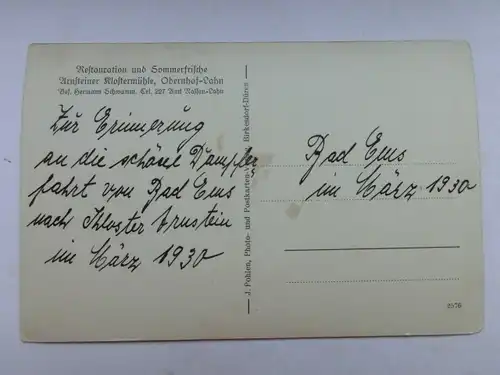 Restauration und Sommerfrische
Arnsteiner Klostermühle, Obernhof-Lahn
Bes. Hermann Schwamm. Tel. 227 Amt Nassau-Lahn
Zur Erinnerung
an die schöne Dampfer
fahrt von Bad Ems
nach Kloster Arnstein
im März 1930
J. Pohlen, Photo- und Postkarten- Birkesdorf-Düren
Bad Ems
im März 1930
2576